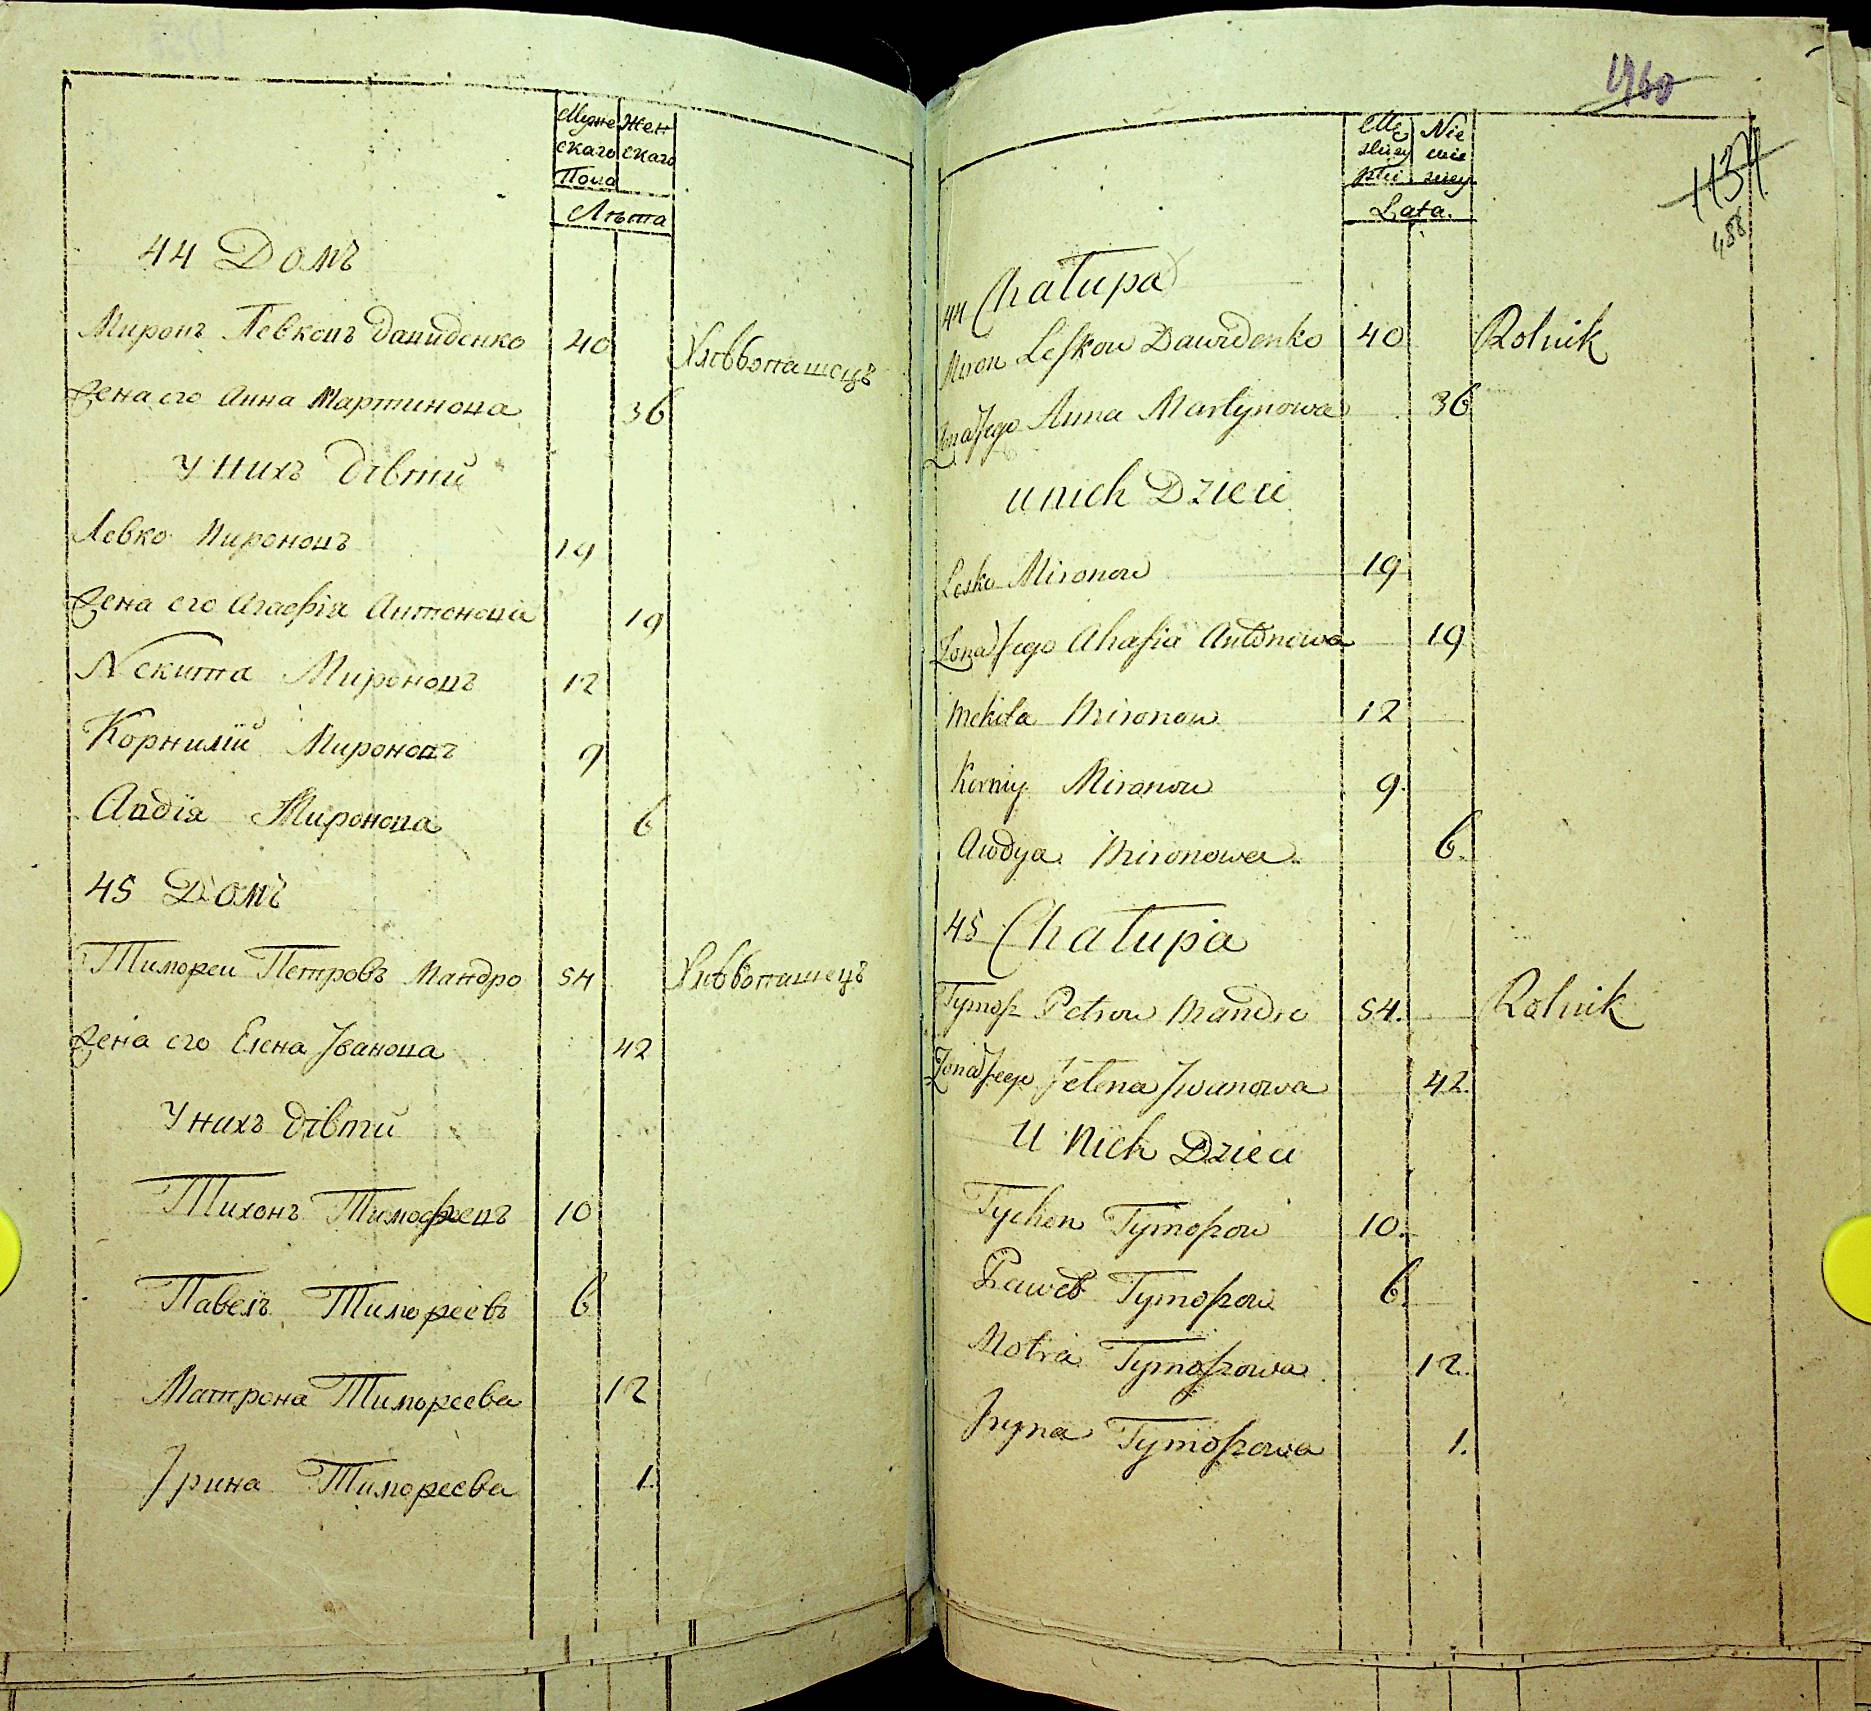 Муже Жен
скаго скаго
Пола
Лѣта
44 Домъ
Миронъ Левковъ Давиденко 40 Хлѣбопашецъ
Жена его Анна Мартинова 36
У нихъ дѣтий
Левко Мироновъ 19
Жена его Агафія Антонова 19
Никита Мироновъ 12
Корнилій Мироновъ 9
Авдія Миронова 6
45 Домъ
Тимофеи Петровъ Мандро 54 Хлѣбопашецъ
Жена его Елена Іванова 42
У нихъ дѣтий
Тихонъ Тимофеевъ 10
Павелъ Тимофеевъ 6
Матрона Тимофеева 12
Ірина Тимофеева 1.
1137
488
Lata.
44 Chałupa
Miron Leskow Dawidenko 40 Rolnik
Żona Jego Anna Martynowa 36
u nich Dzieci
Lesko Mironow 19
Żona Jego Ahafia Antonowa 19
Mekita Mironow 12
Korniy Mironow 9.
Awdya Mironowa 6.
45 Chałupa
Tymof Petrow Mandro 54. Rolnik
Żona Jego Jelena Jwanowa 42.
U Nich Dzieci
Tychon Tymofow 10.
Paweł Tymofow 6.
Motra Tymofowa 12.
Jryna Tymofowa 1.